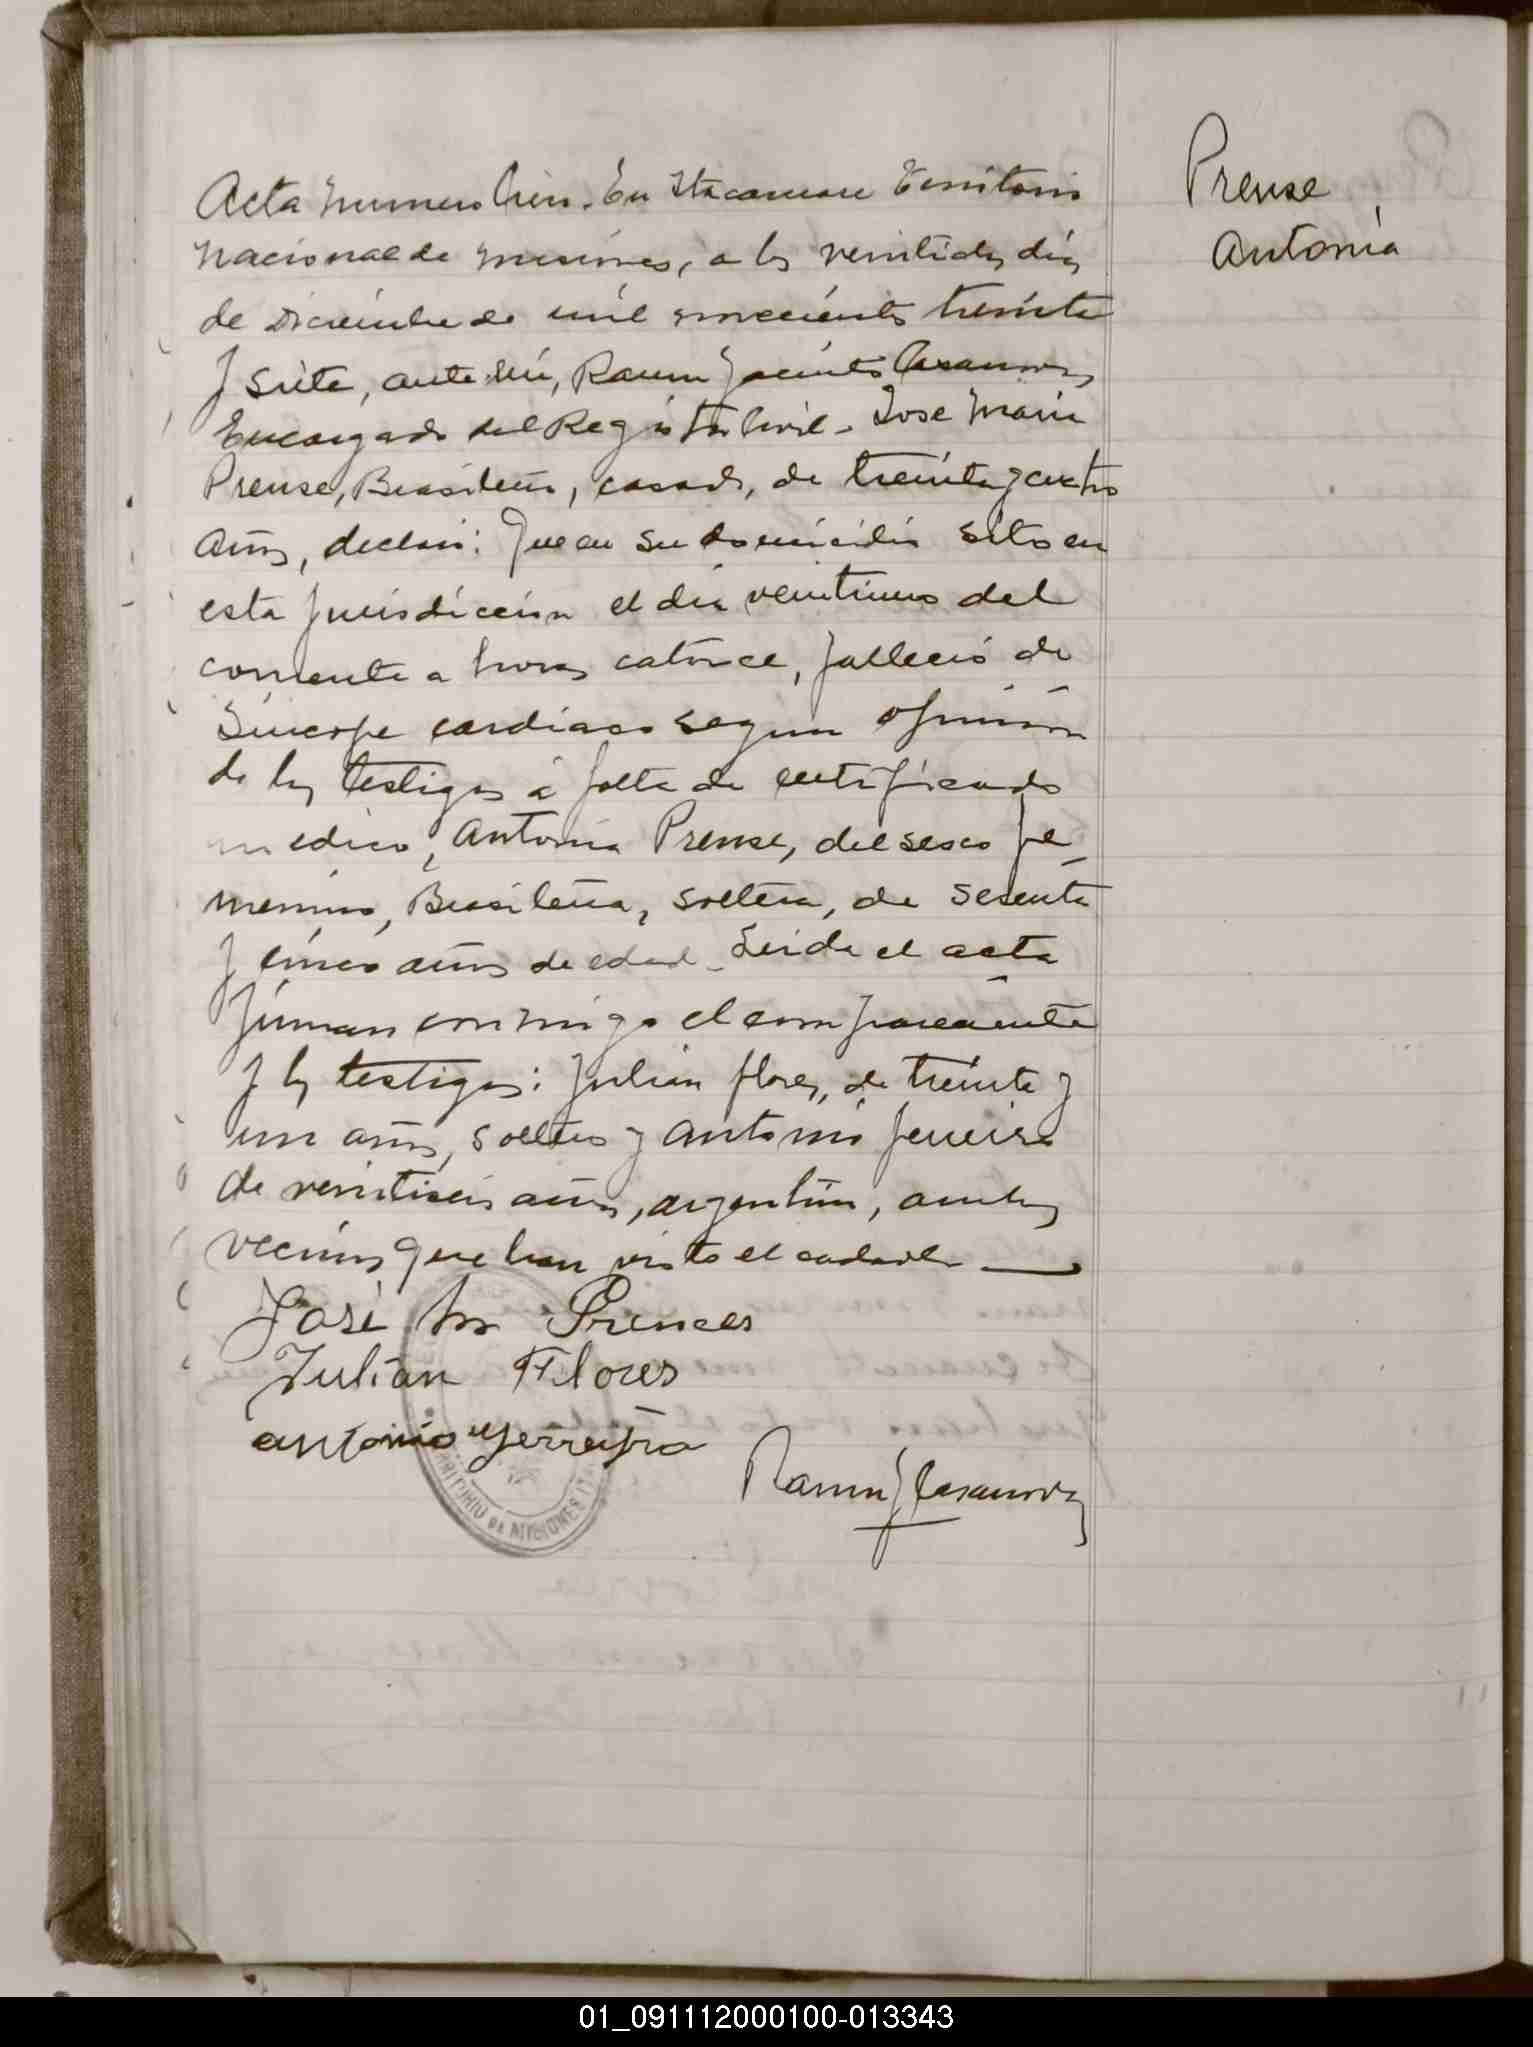 Prense
Antonia
Acta Numero Cien. En Itacaruare Territorio
Nacional de Misiones, a los veintidos dias
de Diciembre de mil novecientos treinta
y siete, ante mi, Ramon Jacinto Casanova,
Encargado del Registro Civil - Jose Maria
Prense, Brasileño, casado, de treinta y cuatro
años, declaró: Que en su domicilio sito en
esta jurisdiccion el dia veintiuno del
corriente a horas catorce, falleció de
Sincope cardiaco segun opinión
de los testigos á falta de certificado
medico, Antonia Prense, del sexo fe-
menino, Brasileña, soltera, de sesenta
y cinco años de edad - Leida el acta
firman conmigo el compareciente
y los testigos: Julian Flores, de treinta y
un años, soltero y Antonio Ferreira
de veintiseis años, argentino, ambos
vecinos que han visto el cadaver
José M Prences
Julian Flores
antonio Ferreira
Ramon J Casanova
TERRITORIO DE MISIONES
01_091112000100-013343